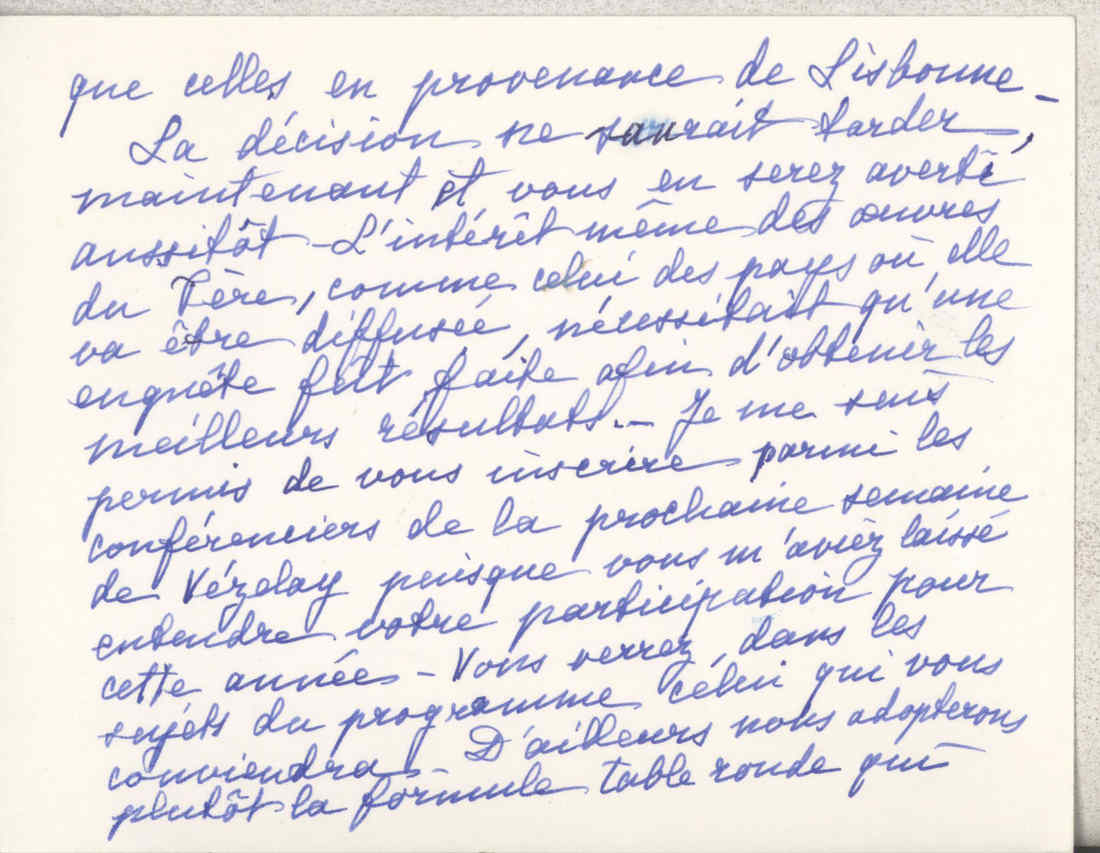 que celles en provenance de Lisbonne -
La décision ne saurait tarder,
maintenant et vous en serez averti
aussitôt - L'intérêt même des œuvres
du Père, comme celui des pays où elle
va être diffusée, nécessitait qu'une
enquête fût faite afin d'obtenir les
meilleurs résultats. - Je me suis
permis de vous inscrire parmi les
conférenciers de la prochaine semaine
de Vézelay puisque vous m'aviez laissé
entendre votre participation pour
cette année - Vous verrez, dans les
sujets du programme celui qui vous
conviendra - D'ailleurs nous adopterons
plutôt la formule table ronde qui